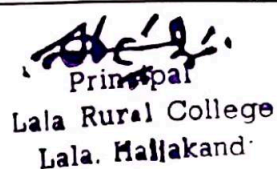 Principal
Lala Rural College
Lala. Hailakandi